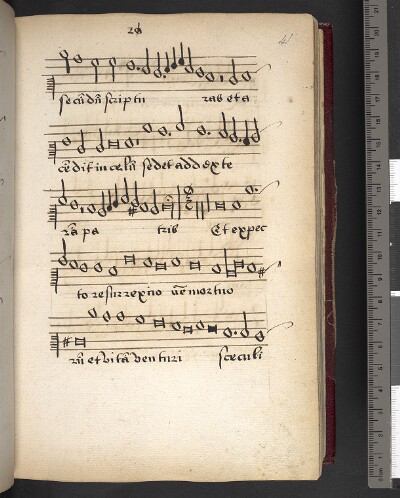 28
41
secūdū scriptu ras et a
cēdit in celū sedet ad dexte
rā pa tris Et expec
to resurrexino uē mortuo
rū et vitā venturi sœculi